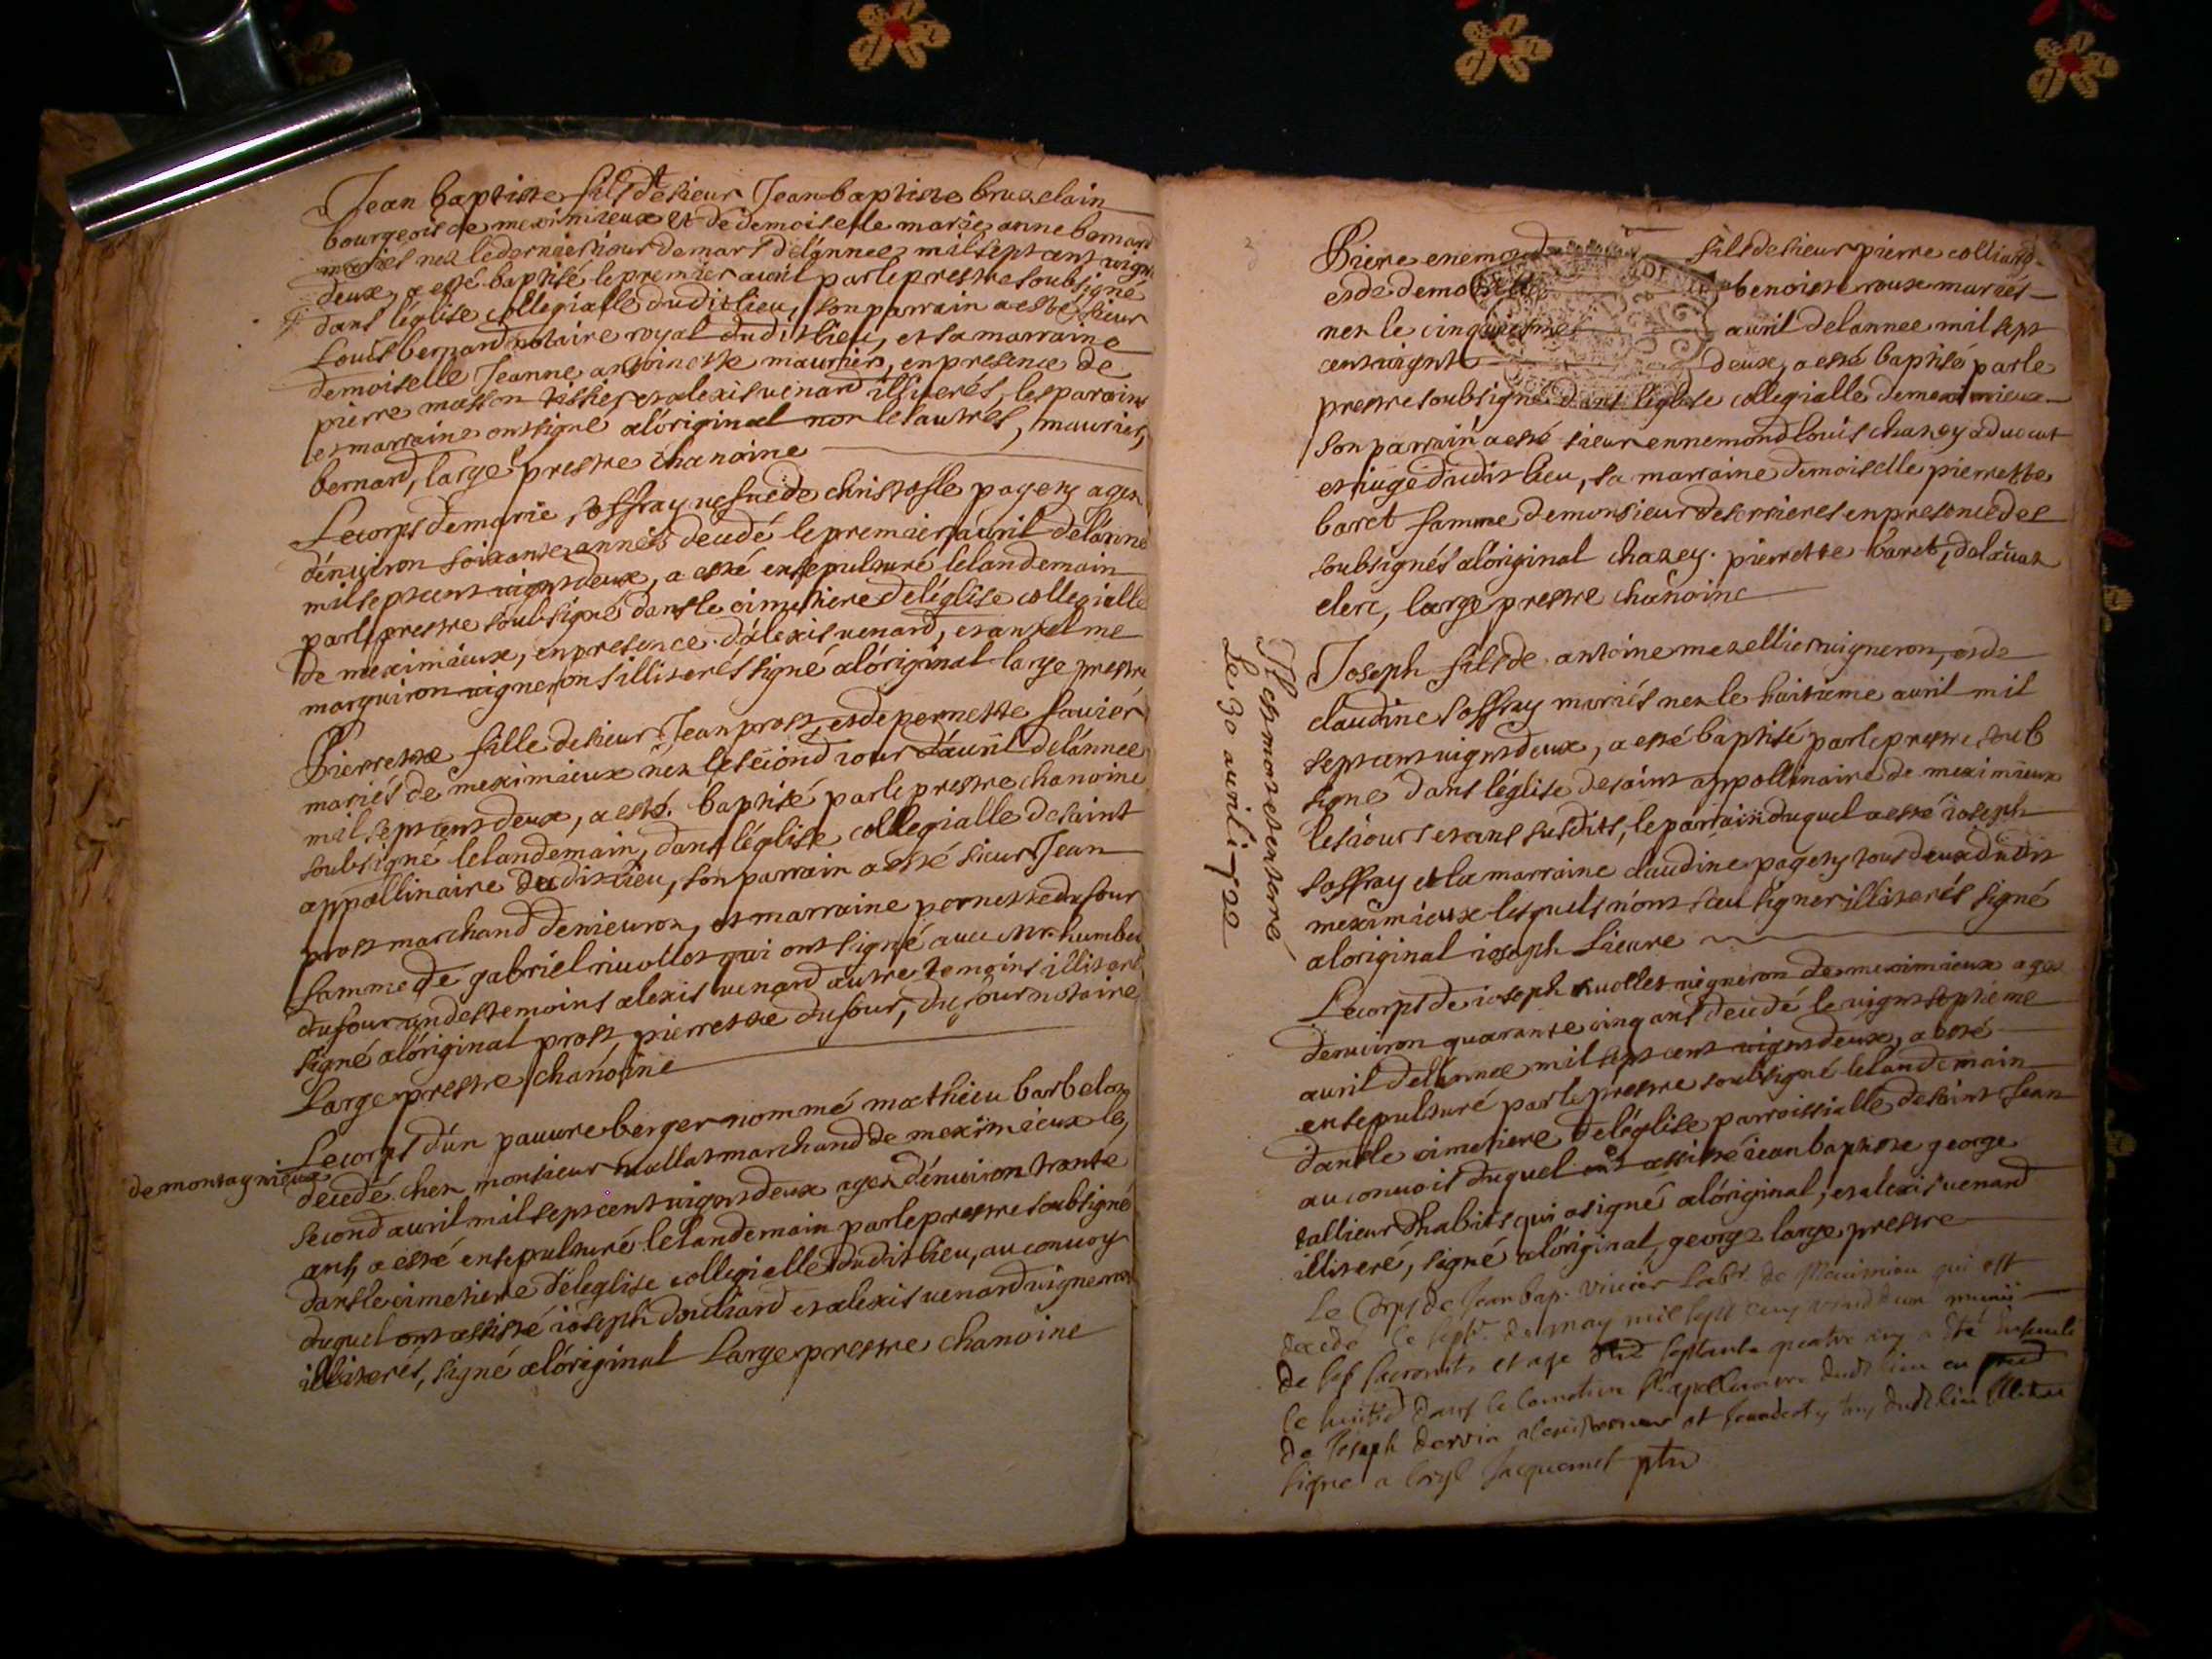 Jean baptiste fils de sieur Jean baptiste bruzelain
bourgeois de meximieux et de demoiselle marie anne bernard
mariés nez le dernier iour de mars de lánnee mil sept cent vignt
deux, a esté baptisé le premier avril par le prestre soubsigné
dans léglise collegialle dudit lieu, son parrain a esté sieur
Louis bernard notaire royal dudit lieu, et sa marraine
demoiselle Jeanne antoinette maurier, en presence de
pierre masson tissier et alexis venard illiterés, les parrain
et marraine ont signé alóriginal non les autres, maurier,
bernard, large prestre chanoine
Le corps de marie soffray vesue de christofle pagety agez
dénviron soixante années decedé le premier avril de lánne
mil sept cent vignt deux, a esté ensepulturé le landemain
par le prestre soubsigné dans le cimetiere de léglise collegialle
de meximieux, en presence dálexis venard, et anthelme
marquiron vignerons illiterés signé alóriginal large prestre
Pierrette fille de sieur Jean prost, et de pernette favier
mariés de meximieux nez le second iour dávril de lánnee
mil sept cent deux, a esté baptisé par le prestre chanoine
soubsigné le landemain, dans léglise collegialle de saint
appollinaire dudit lieu, son parrain a esté sieur Jean
prost marchand de nievroz, et marraine pernette dufour
famme de gabriel rivollet qui ont signé avec Mr. humber
dufour un des temoins alexis venard autre temoins illiteré
signé alóriginal prost, pierrette dufour, dufour notaire
Large prestre chanóine
Le corps dún pauvre berger nommé mathieu barbeloz
de montagnieux
decedé chez monsieur marchand de meximieux le
second avril mil sept cent vignt deux agez dénviron trante
ans, a esté ensepulturé le landemain par le prestre soubsigné
dans le cimetiere de léglise collegialle dudit lieu, au convoy
duquel ont assisté ióseph et alexis venard vigneron
illiterés, signé alóriginal Large prestre chanoine
Piere enemond fils de sieur pierre colliard
et de demoiselle benoiste roux mariés
nez le cinquiesme avril de lannee mil sept
cent vignt deux, a esté baptisé par le
prestre soubsigné dans léglise collegialle de meximieux
son parrain a esté sieur ennemond louis chazey advocat
et iuge dudit lieu, sa marraine demoiselle pierrette
baret famme de monsieur deserrieres en presence des
soubsignés alóriginal chazey. pierrette baret, delavaz
clerc, large prestre chanoine
Il est mort et enterré
Le 30 avril 1722
Joseph fils de antoine mezellier vigneron, et de
claudine soffray mariés nez le huitieme avril mil
sept cent vignt deux, a esté baptisé par le prestre soub
signé dans léglise de saint appollinaire de meximieux
les iours et ans susdits, le parrain duquel a esté ioseph
soffray et la marraine claudine pagety tous deux dudit
meximieux lesquels nónt sceu signer illiterés signé
aloriginal ioseph Lievre
Le corps de ioseph rivollet vigneron de meximieux agez
denviron quarante cinq ans decedé le vignt septieme
avril de lánnee mil sept cent vignt deux, a esté
ensepulturé par le prestre soubsigné le landemain
dans le cimetiere de léglise parroissialle de saint Jean
au convoit duquel assisté iean baptiste george
tallieur dhabits qui a signé alóriginal, et alexis venard
illiteré, signé alóriginal, george large prestre
Le Corps de Jean bap. de qui est
decedé le sept. de may mil sept cens vingt deux munii
de ses sacrements et age septante quatre ans a eté
le huitie dans le Cemetiere St. apollinaire dudt lieu en
de Joseph et dudt lieu
signe a lorigl Jacquemet ptre